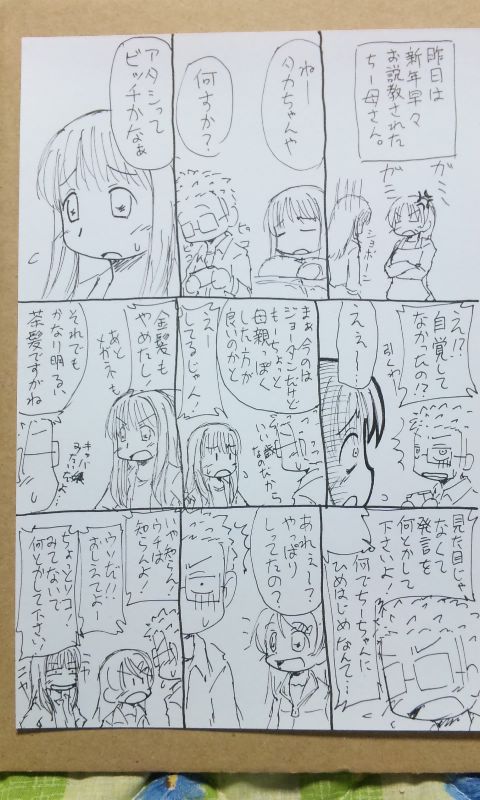 昨日は
新年早々
お説教された
ちー母さん。
ガミ
ガミ
ショボーン
ねー
タカちゃんや
何すか？
ピコ
ピコ
アタシって
ビッチかなぁ
え!?
自覚して
なかったの!?
えぇー
まぁ今のは
ジョーダンだけど
もーちょっと
母親っぽく
した方が
良いのかと
いい歳
なのだから
えー
してるじゃん!
金髪も
やめたし!
あと
メガネも
それでも
かなり明るい
茶髪ですがね
キャバ嬢
みたいな
見た目じゃ
なくて
発言を
何とかして
下さいよ!
何でちーちゃんに
ひめはじめなんて…
あれぇー?
やっぱり
しってたの?
いや知らん!
ウチは
知らんよ!
ウソだ!!
おしえてよー
ちょっとソコ!
みてないで
何とかして下さい!